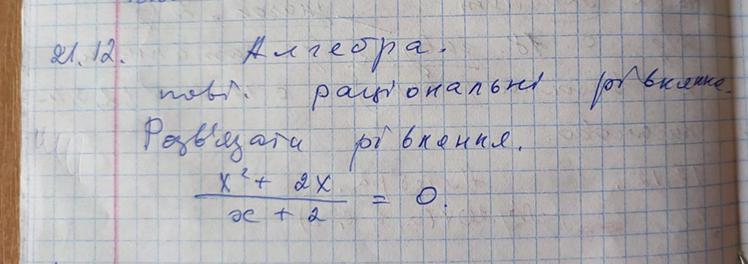 21.12. Алгебра.
повт. раціональні рівняння.
Розв'язати рівняння.
x² + 2x
x + 2
= 0.